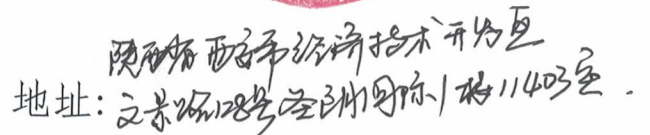 陕西省西安市经济技术开发区
地址：文景路128号圣阳国际1栋11403室.